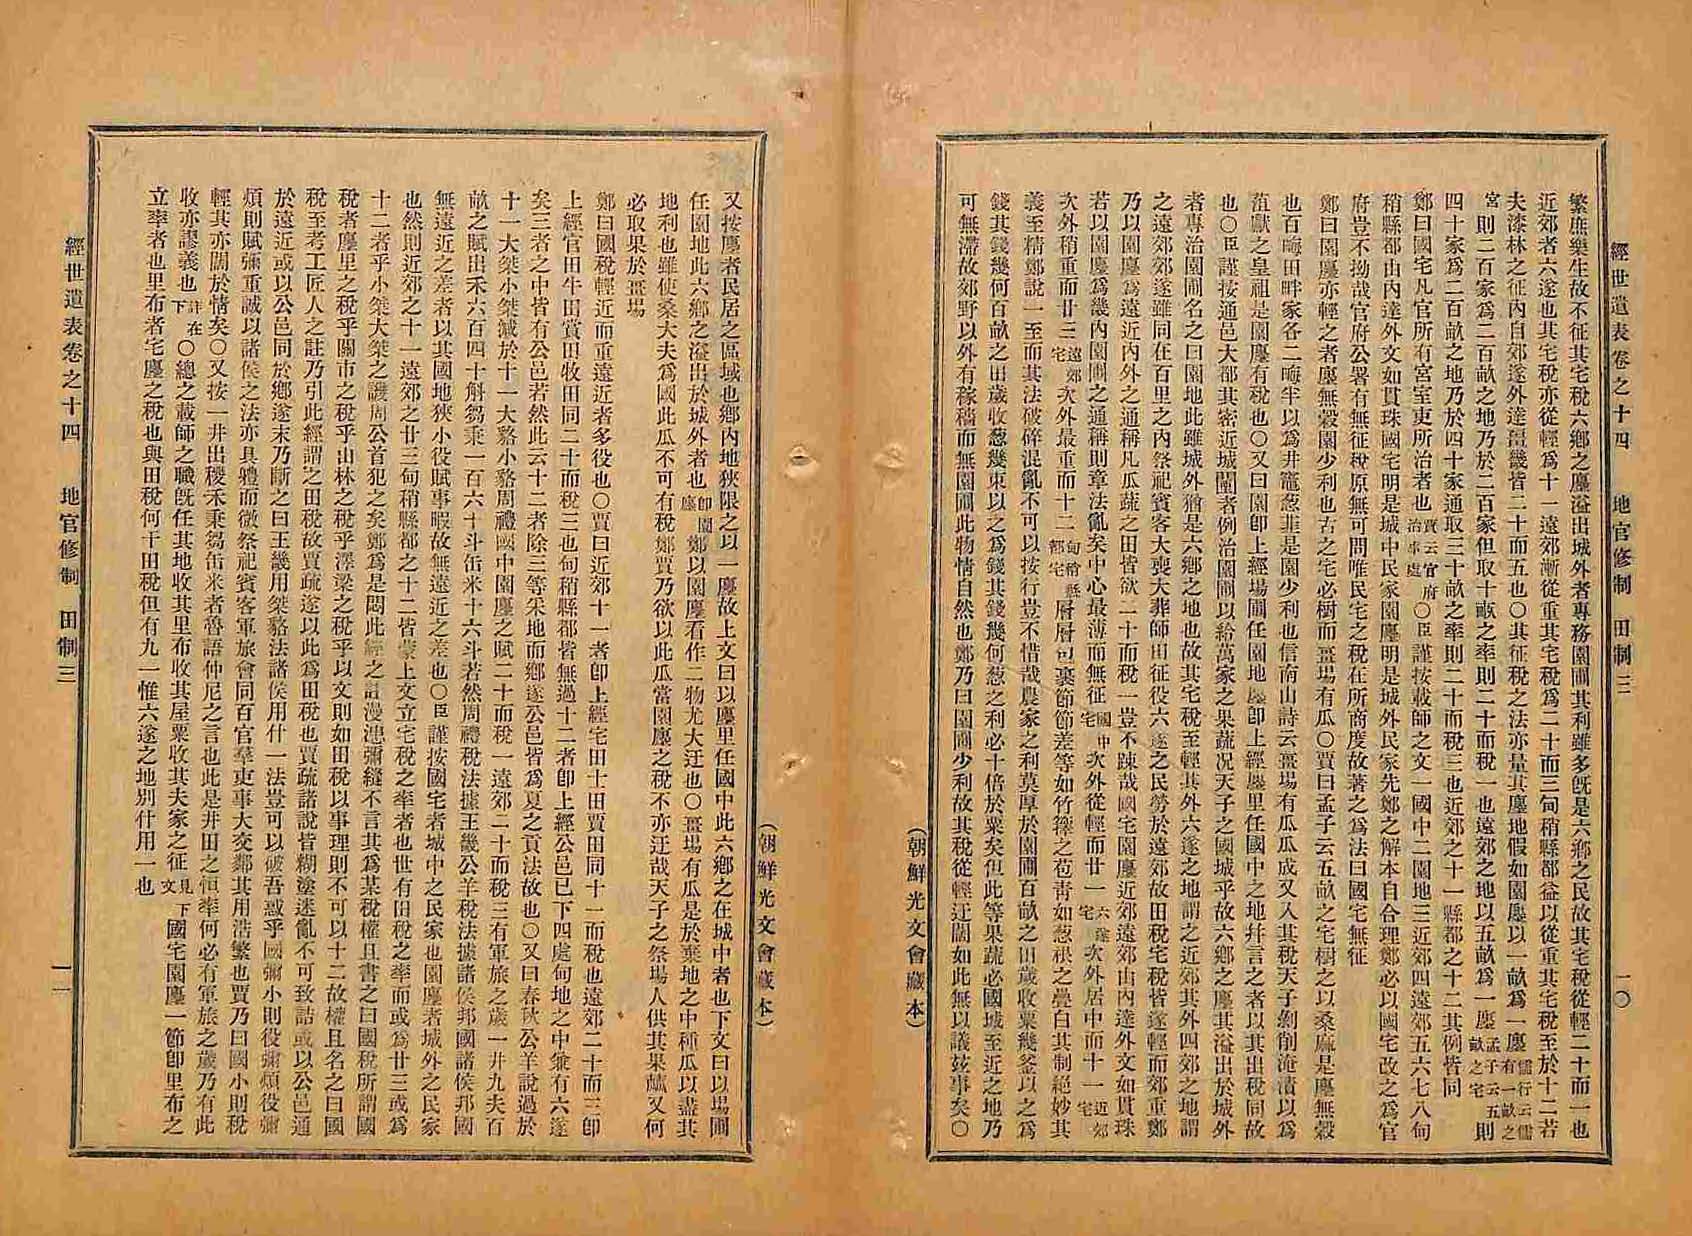 經世遺表卷之十四 地官修制 田制三 一〇
繁庶樂生故不征其宅稅六鄕之廛溢出城外者專務園圃其利雖多旣是六鄕之民故其宅稅從輕二十而一也
近郊者六遂也其宅稅亦從輕爲十一遠郊漸從重其宅稅爲二十而三甸稍縣都益以從重其宅稅至於十二若
夫漆林之征內自郊遂外達畺畿皆二十而五也〇其征稅之法亦量其廛地假如園廛以一畝爲一廛儒行云儒有一畝之
宮則二百家爲二百畝之地乃於二百家但取十畝之率則二十而稅一也遠郊之地以五畝爲一廛孟子云五畝之宅則
四十家爲二百畝之地乃於四十家通取三十畝之率則二十而稅三也近郊之十一縣都之十二其例皆同
鄭曰國宅凡官所有宮室吏所治者也賈云官府治事處〇臣謹按載師之文一國中二園地三近郊四遠郊五六七八甸
稍縣都由內達外文如貫珠國宅明是城中民家園廛明是城外民家先鄭之解本自合理鄭必以國宅改之爲官
府豈不拗哉官府公署有無征稅原無可問唯民宅之稅在所商度故著之爲法曰國宅無征
鄭曰園廛亦輕之者廛無穀園少利也古之宅必樹而畺場有瓜〇賈曰孟子云五畝之宅樹之以桑麻是廛無穀
也百畮田畔家各二畮半以爲井竈葱韭是園少利也信南山詩云畺場有瓜瓜成又入其稅天子剝削淹漬以爲
菹獻之皇祖是園廛有稅也〇又曰園卽上經場圃任園地廛卽上經廛里任國中之地幷言之者以其出稅同故
也〇臣謹按通邑大都其密近城闉者例治園圃以給萬家之果蔬况天子之國城乎故六鄕之廛其溢出於城外
者專治園圃名之曰園地此雖城外猶是六鄕之地也故其宅稅至輕其外六遂之地謂之近郊其外四郊之地謂
之遠郊郊遂雖同在百里之內祭祀賓客大喪大葬師田征役六遂之民勞於遠郊故田稅宅稅皆遂輕而郊重鄭
乃以園廛爲遠近內外之通稱凡瓜蔬之田皆欲二十而稅一豈不踈哉國宅園廛近郊遠郊由內達外文如貫珠
若以園廛爲畿內園圃之通稱則章法亂矣中心最薄而無征國中宅次外從輕而廿一六鄕宅次外居中而十一近郊宅
次外稍重而廿三遠郊宅次外最重而十二甸稍縣都宅層層包裹節節差等如竹籜之苞靑如葱根之疊白其制絕妙其
義至精鄭說一至而其法破碎混亂不可以按行豈不惜哉農家之利莫厚於園圃百畝之田歲收粟幾釜以之爲
錢其錢幾何百畝之田歲收葱幾束以之爲錢其錢幾何葱之利必十倍於粟矣但此等果蔬必國城至近之地乃
可無滯故郊野以外有稼穡而無園圃此物情自然也鄭乃曰園圃少利故其稅從輕迂闊如此無以議玆事矣〇
（朝鮮光文會藏本）
又按廛者民居之區域也鄕內地狹限之以一廛故上文曰以廛里任國中此六鄕之在城中者也下文曰以場圃
任園地此六鄕之溢出於城外者也卽園廛鄭以園廛看作二物尤大迂也〇畺場有瓜是於棄地之中種瓜以盡其
地利也雖使桑大夫爲國此瓜不可有稅鄭賈乃欲以此瓜當園廛之稅不亦迂哉天子之祭場人供其果蓏又何
必取果於畺場
鄭曰國稅輕近而重遠近者多役也〇賈曰近郊十一者卽上經宅田士田賈田同十一而稅也遠郊二十而三卽
上經官田牛田賞田牧田同二十而稅三也甸稍縣都皆無過十二者卽上經公邑已下四處甸地之中兼有六遂
矣三者之中皆有公邑若然此云十二者除三等采地而鄕遂公邑皆爲夏之貢法故也〇又曰春秋公羊說過於
十一大桀小桀減於十一大貉小貉周禮國中園廛之賦二十而稅一遠郊二十而稅三有軍旅之歲一井九夫百
畝之賦出禾六百四十斛芻秉一百六十斗缶米十六斗若然周禮稅法據王畿公羊稅法據諸侯邦國諸侯邦國
無遠近之差者以其國地狹小役賦事暇故無遠近之差也〇臣謹按國宅者城中之民家也園廛者城外之民家
也然則近郊之十一遠郊之廿三甸稍縣都之十二皆蒙上文立宅稅之率者也世有田稅之率而或爲廿三或爲
十二者乎小桀大桀之譏周公首犯之矣鄭爲是悶此經之註漫漶彌縫不言其爲某稅權且書之曰國稅所謂國
稅者廛里之稅乎關市之稅乎山林之稅乎澤梁之稅乎以文則如田稅以事理則不可以十二故權且名之曰國
稅至考工匠人之註乃引此經謂之田稅故賈疏遂以此爲田稅也賈疏諸說皆糊塗迷亂不可致詰或以公邑通
於遠近或以公邑同於鄕遂末乃斷之曰王畿用桀貉法諸侯用什一法豈可以破吾惑乎國彌小則役彌煩役彌
煩則賦彌重誠以諸侯之法亦具軆而徵祭祀賓客軍旅會同百官羣吏事大交鄰其用浩繁也賈乃曰國小則稅
輕其亦闊於情矣〇又按一井出稷禾秉芻缶米者魯語仲尼之言也此是井田之恒率何必有軍旅之歲乃有此
收亦謬義也詳在下〇總之載師之職旣任其地收其里布收其屋粟收其夫家之征見下文國宅園廛一節卽里布之
立率者也里布者宅廛之稅也與田稅何干田稅但有九一惟六遂之地別什用一也
經世遺表卷之十四 地官修制 田制三 一一
（朝鮮光文會藏本）